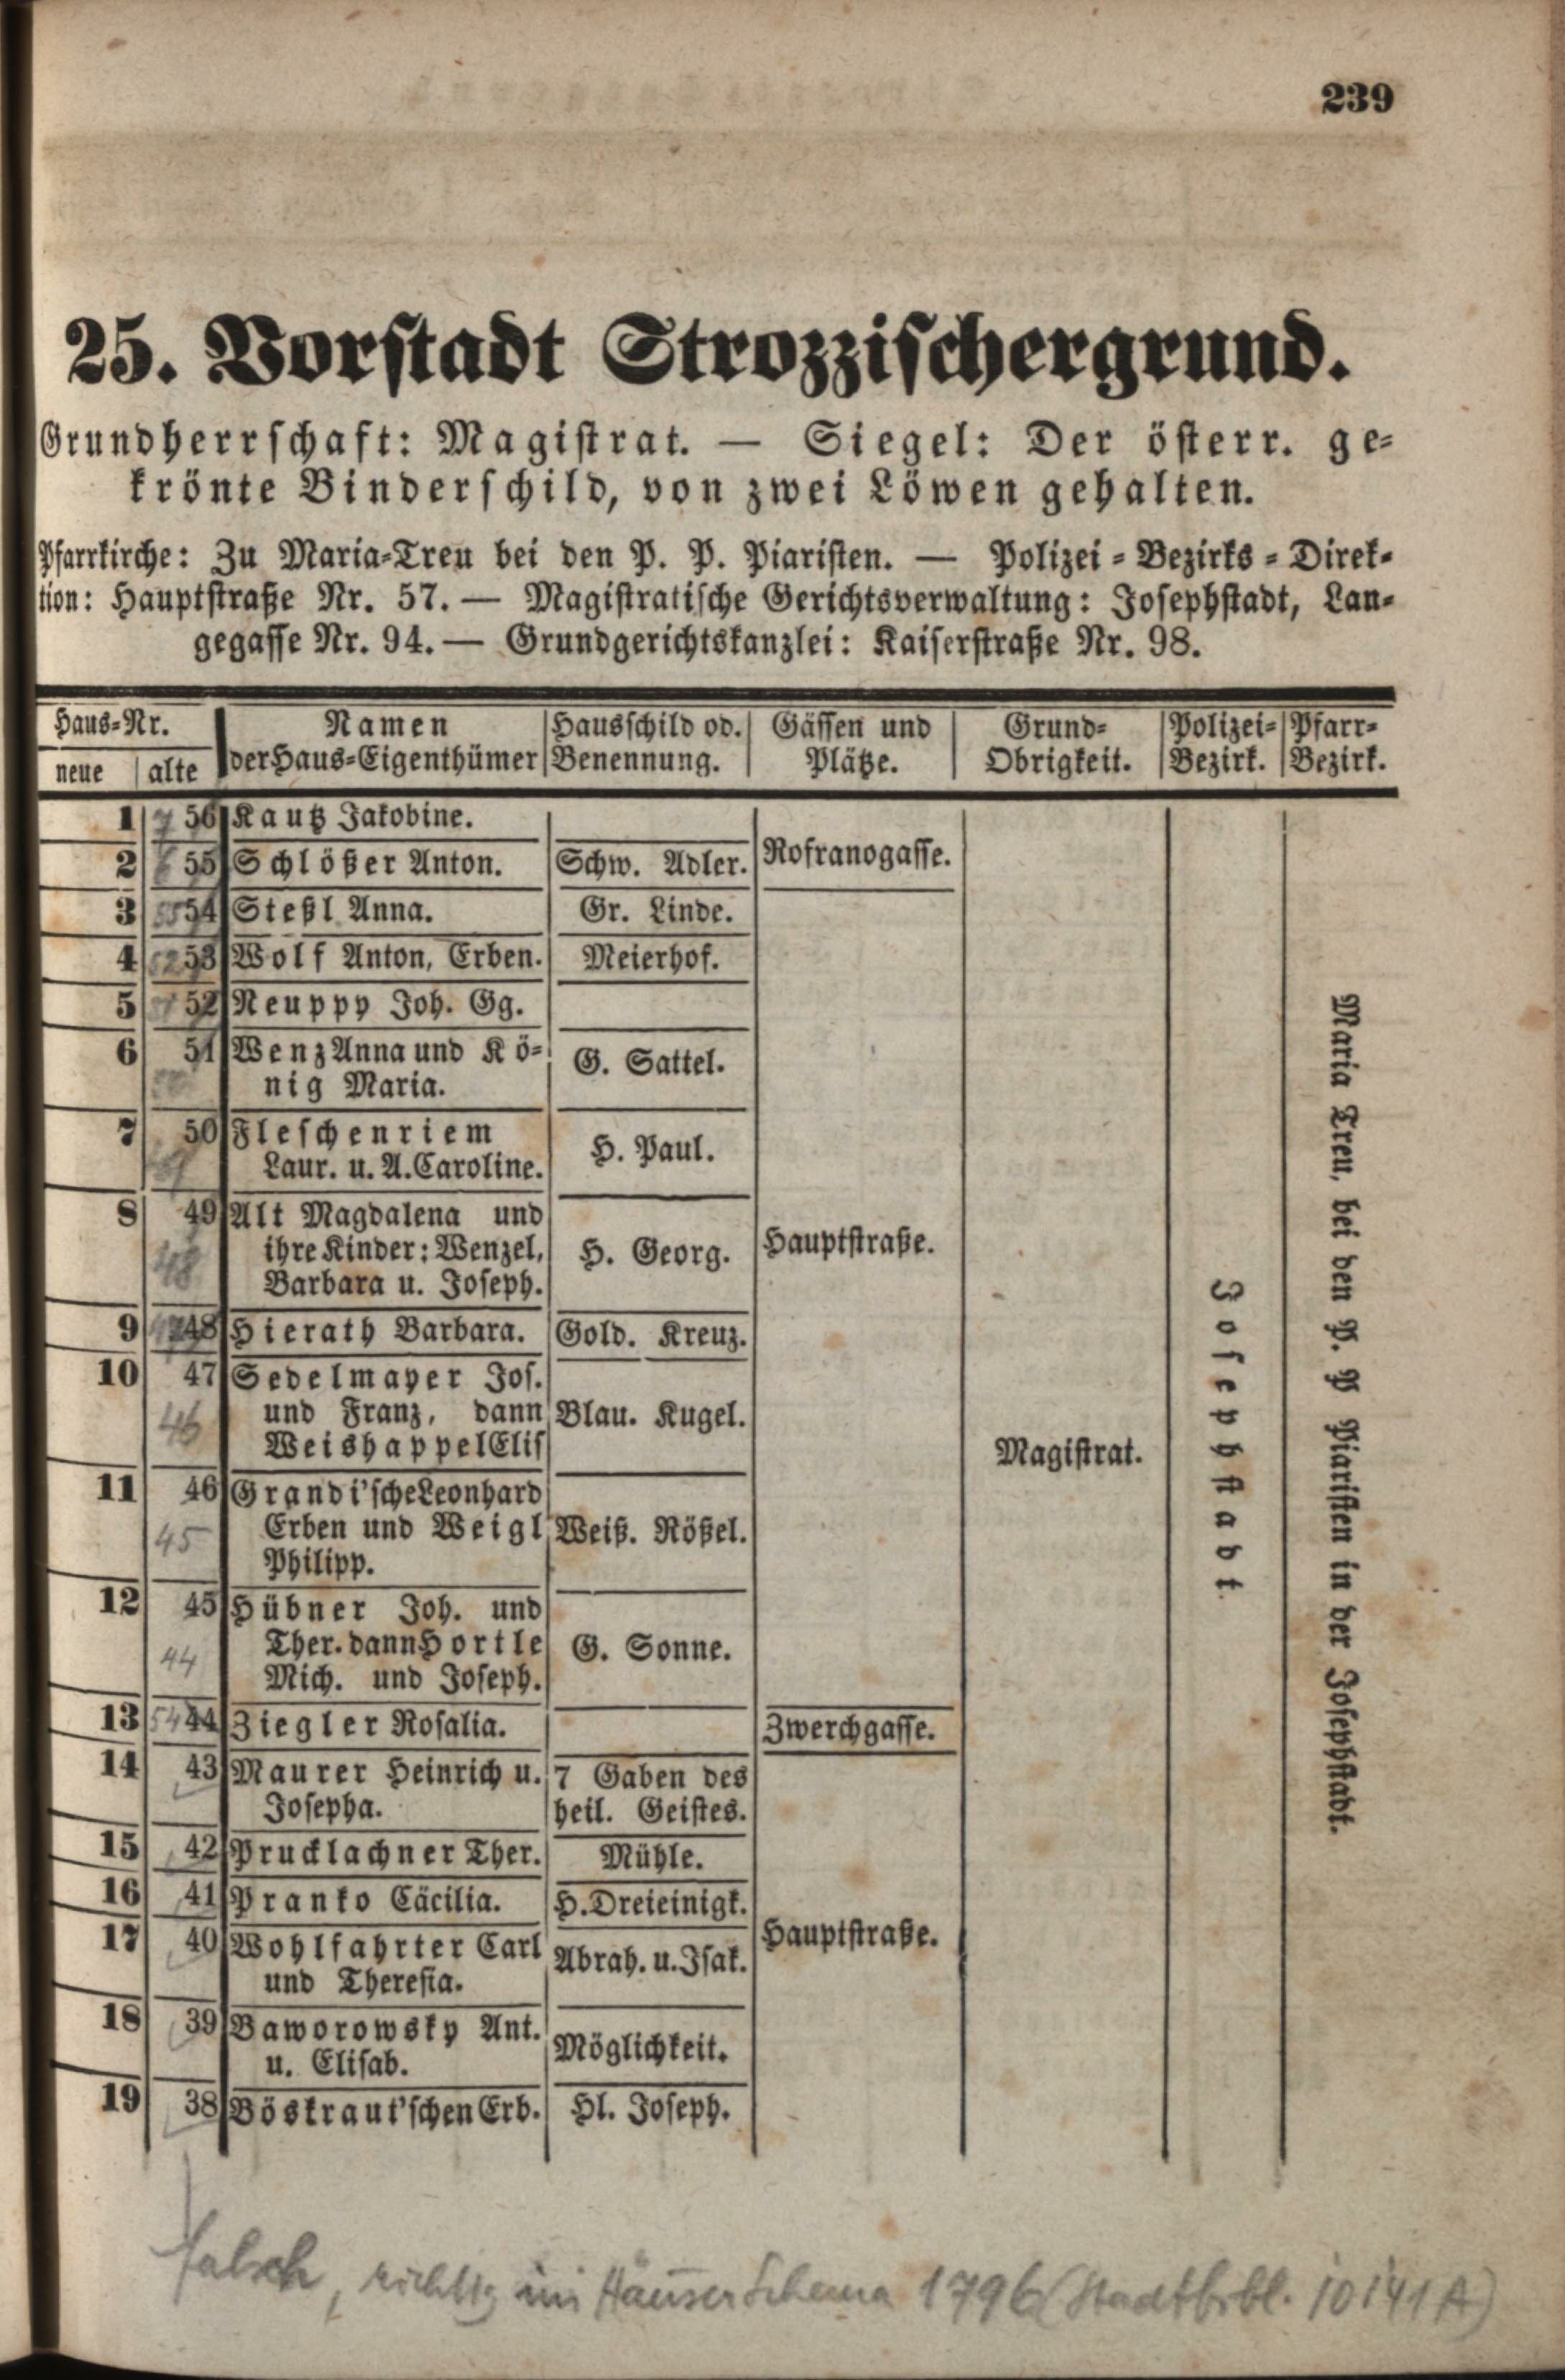 239
25. Vorstadt Strozzischergrund.
Grundherrschaft: Magistrat. — Siegel: Der österr. ge-
krönte Binderschild, von zwei Löwen gehalten.
Pfarrkirche: Zu Maria-Treu bei den P. P. Piaristen. — Polizei-Bezirks-Direk-
tion: Hauptstraße Nr. 57. — Magistratische Gerichtsverwaltung: Josephstadt, Lan-
gegasse Nr. 94. — Grundgerichtskanzlei: Kaiserstraße Nr. 98.
Haus-Nr. Namen Hausschild od. Gässen und Grund- Polizei- Pfarr-
neue alte der Haus-Eigenthümer Benennung. Plätze. Obrigkeit. Bezirk. Bezirk.
1 56 Kautz Jakobine.
Rofranogasse.
2 55 Schlößer Anton. Schw. Adler.
3 54 Steßl Anna. Gr. Linde.
4 53 Wolf Anton, Erben. Meierhof.
5 52 Neuppy Joh. Gg.
6 51 Wenz Anna und Kö- G. Sattel.
nig Maria.
7 50 Fleschenriem H. Paul.
Laur. u. A. Caroline.
8 49 Alt Magdalena und
ihre Kinder: Wenzel, H. Georg. Hauptstraße.
48 Barbara u. Joseph.
9 48 Hierath Barbara. Gold. Kreuz.
10 47 Sedelmayer Jos.
46 und Franz, dann Blau. Kugel.
Weishappel Elis
Magistrat.
Josephstadt
Maria Treu, bei den P. P Piaristen in der Josephstadt.
11 46 Grandi'sche Leonhard
45 Erben und Weigl Weiß. Rößel.
Philipp.
12 45 Hübner Joh. und
44 Ther. dann Hortle G. Sonne.
Mich. und Joseph.
13 44 Ziegler Rosalia. Zwerchgasse.
14 43 Maurer Heinrich u. 7 Gaben des
Josepha. heil. Geistes.
15 42 Prucklachner Ther. Mühle.
16 41 Pranko Cäcilia. H. Dreieinigk.
Hauptstraße.
17 40 Wohlfahrter Carl Abrah. u. Isak.
und Theresia.
18 39 Baworowsky Ant. Möglichkeit.
u. Elisab.
19 38 Böskraut'schen Erb. Hl. Joseph.
falsch, richtig im Häuser Schema 1796 (Stadtbibl. 10141 A)